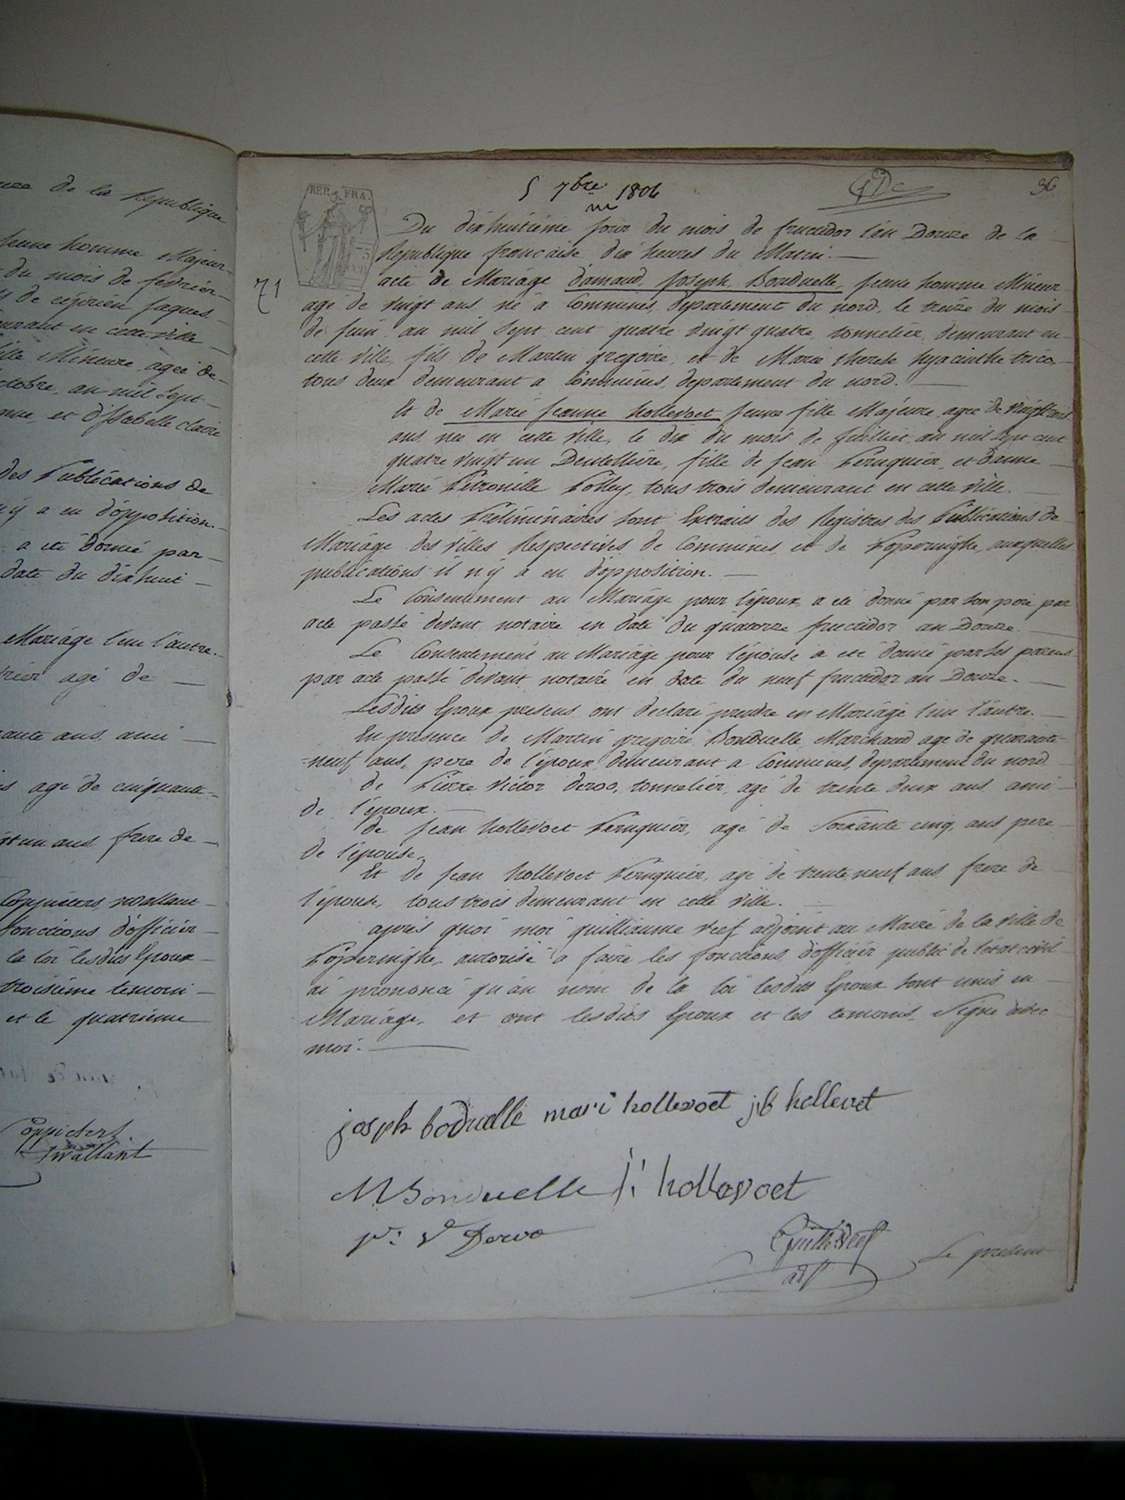 nnee de la Republique
jeune homme Majeur
du mois de fevrier
de ciprien jaques
demeurant en cette ville
fille Mineure, agée de
octobre, au mil sept
et d'Isabelle claire
des Publications de
n'y a eu d'opposition
a eté donné par
date du dixhuit
Mariage l'un l'autre.
agé de
ante ans, ami
agé de cinquante
un ans frere de
Coppieters wallant
fonctions d'officier
la loi lesdits Epoux
troisieme temoin
et le quatrieme
Coppieters
wallant
5 7bre 1806
36
REP. FRA.
Du dixhuitième jour du mois de fructidor l'an Douze de la
Republique francaise, dix heures du Matin.
71
acte de Mariage d'amand Joseph Bonduelle, jeune homme Mineur
agé de vingt ans, né a Commines, departement du nord, le treize du mois
de juin, au mil sept cent quatre vingt quatre, tonnelier, demeurant en
cette ville, fils de Martin gregoire, et de Marie therese hyacinthe
tous deux demeurant a Commines, departement du nord.
Et de Marie Jeanne hollevoet jeune fille Majeure, agée de vingt trois
ans, née en cette ville, le dix du mois de juillet, au mil sept cent
quatre vingt un Dentelliere, fille de jean Peruquier, et dame
Marie Petronille Folley, tous trois demeurant en cette ville.
Les actes Preliminaires sont Extraits des Registres des Publications de
Mariage des villes Respectives de Commines, et de Poperinghe, auxquelles
publications il n'y a eu d'opposition.
Le Consentement au Mariage pour l'époux, a eté donné par son pere par
acte passé devant notaire en date du quatorze fructidor an Douze.
Le Consentement au Mariage pour l'épouse a eté donné par ses parens
par acte passé devant notaire en date du neuf fructidor an Douze.
Lesdits Epoux presens ont declaré prendre en Mariage l'un l'autre.
En presence de Martin gregoire Bonduelle, Marchand agé de quarante
neuf ans, pere de l'époux demeurant a Commines, departement du nord
de Pierre victor deroo, tonnelier, agé de trente deux ans ami
de l'époux.
de jean hollevoet Peruquier, agé de Soixante cinq ans pere
de l'épouse.
Et de jean hollevoet Peruquier, agé de trente neuf ans frere de
l'épouse, tous trois demeurant en cette ville.
après quoi moi guilliaume reef adjoint au Maire de la ville de
Poperinghe, autorisé a faire les fonctions d'officier public de l'etat civil
ai prononcé qu'au nom de la loi lesdits Epoux sont unis en
Mariage, et ont lesdits Epoux et les temoins, signé avec
moi.
joseph boduelle mari hollevoet jb hollevoet
M Bonduelle j: hollevoet
p: v Deroo
Guill: Reef
adj
Le present